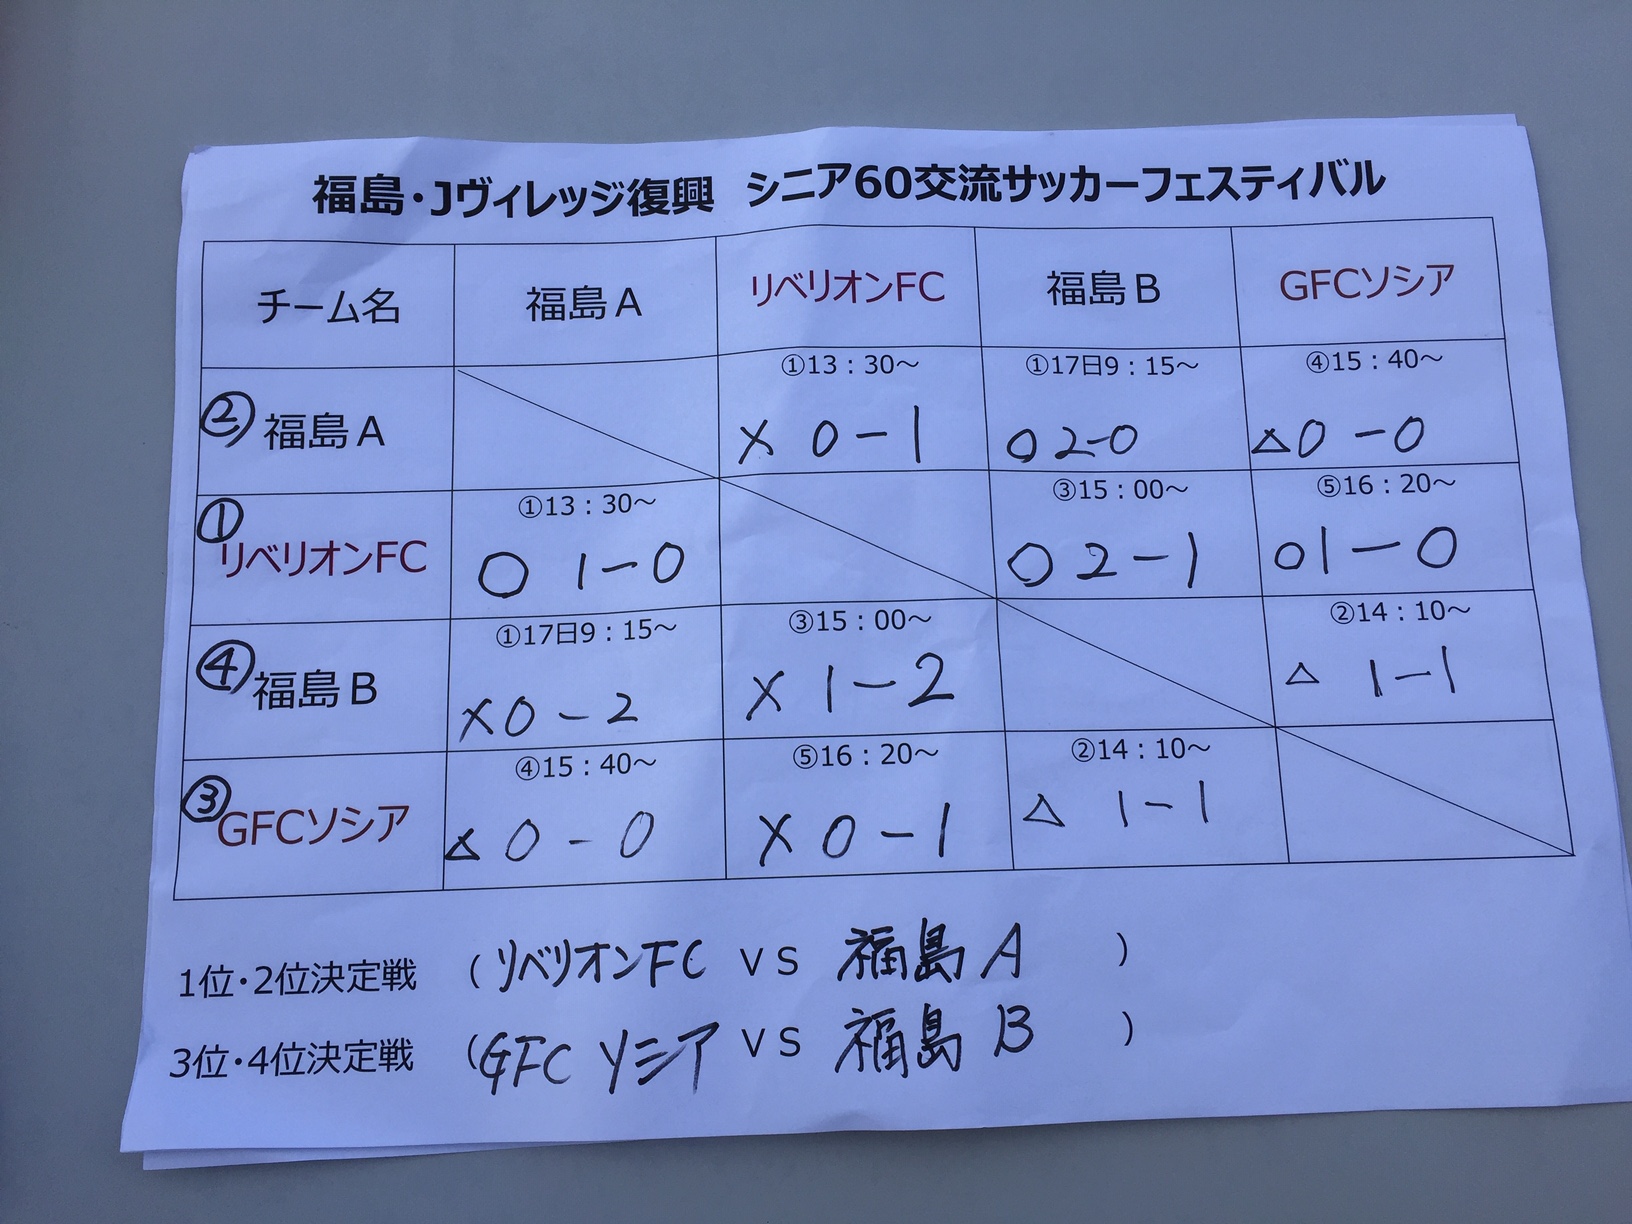 福島・Jヴィレッジ復興 シニア60交流サッカーフェスティバル
チーム名 福島A リベリオンFC 福島B GFCソシア
①13：30～ ①17日9：15～ ④15：40～
② 福島A × 0-1 ○2-0 △0-0
①13：30～ ③15：00～ ⑤16：20～
① リベリオンFC ○ 1-0 ○ 2-1 ○1-0
①17日9：15～ ③15：00～ ②14：10～
④ 福島B ×0-2 × 1-2 △ 1-1
④15：40～ ⑤16：20～ ②14：10～
③ GFCソシア △ 0-0 × 0-1 △ 1-1
1位・2位決定戦 （リベリオンFC VS 福島A ）
3位・4位決定戦 （GFC ソシア VS 福島B ）